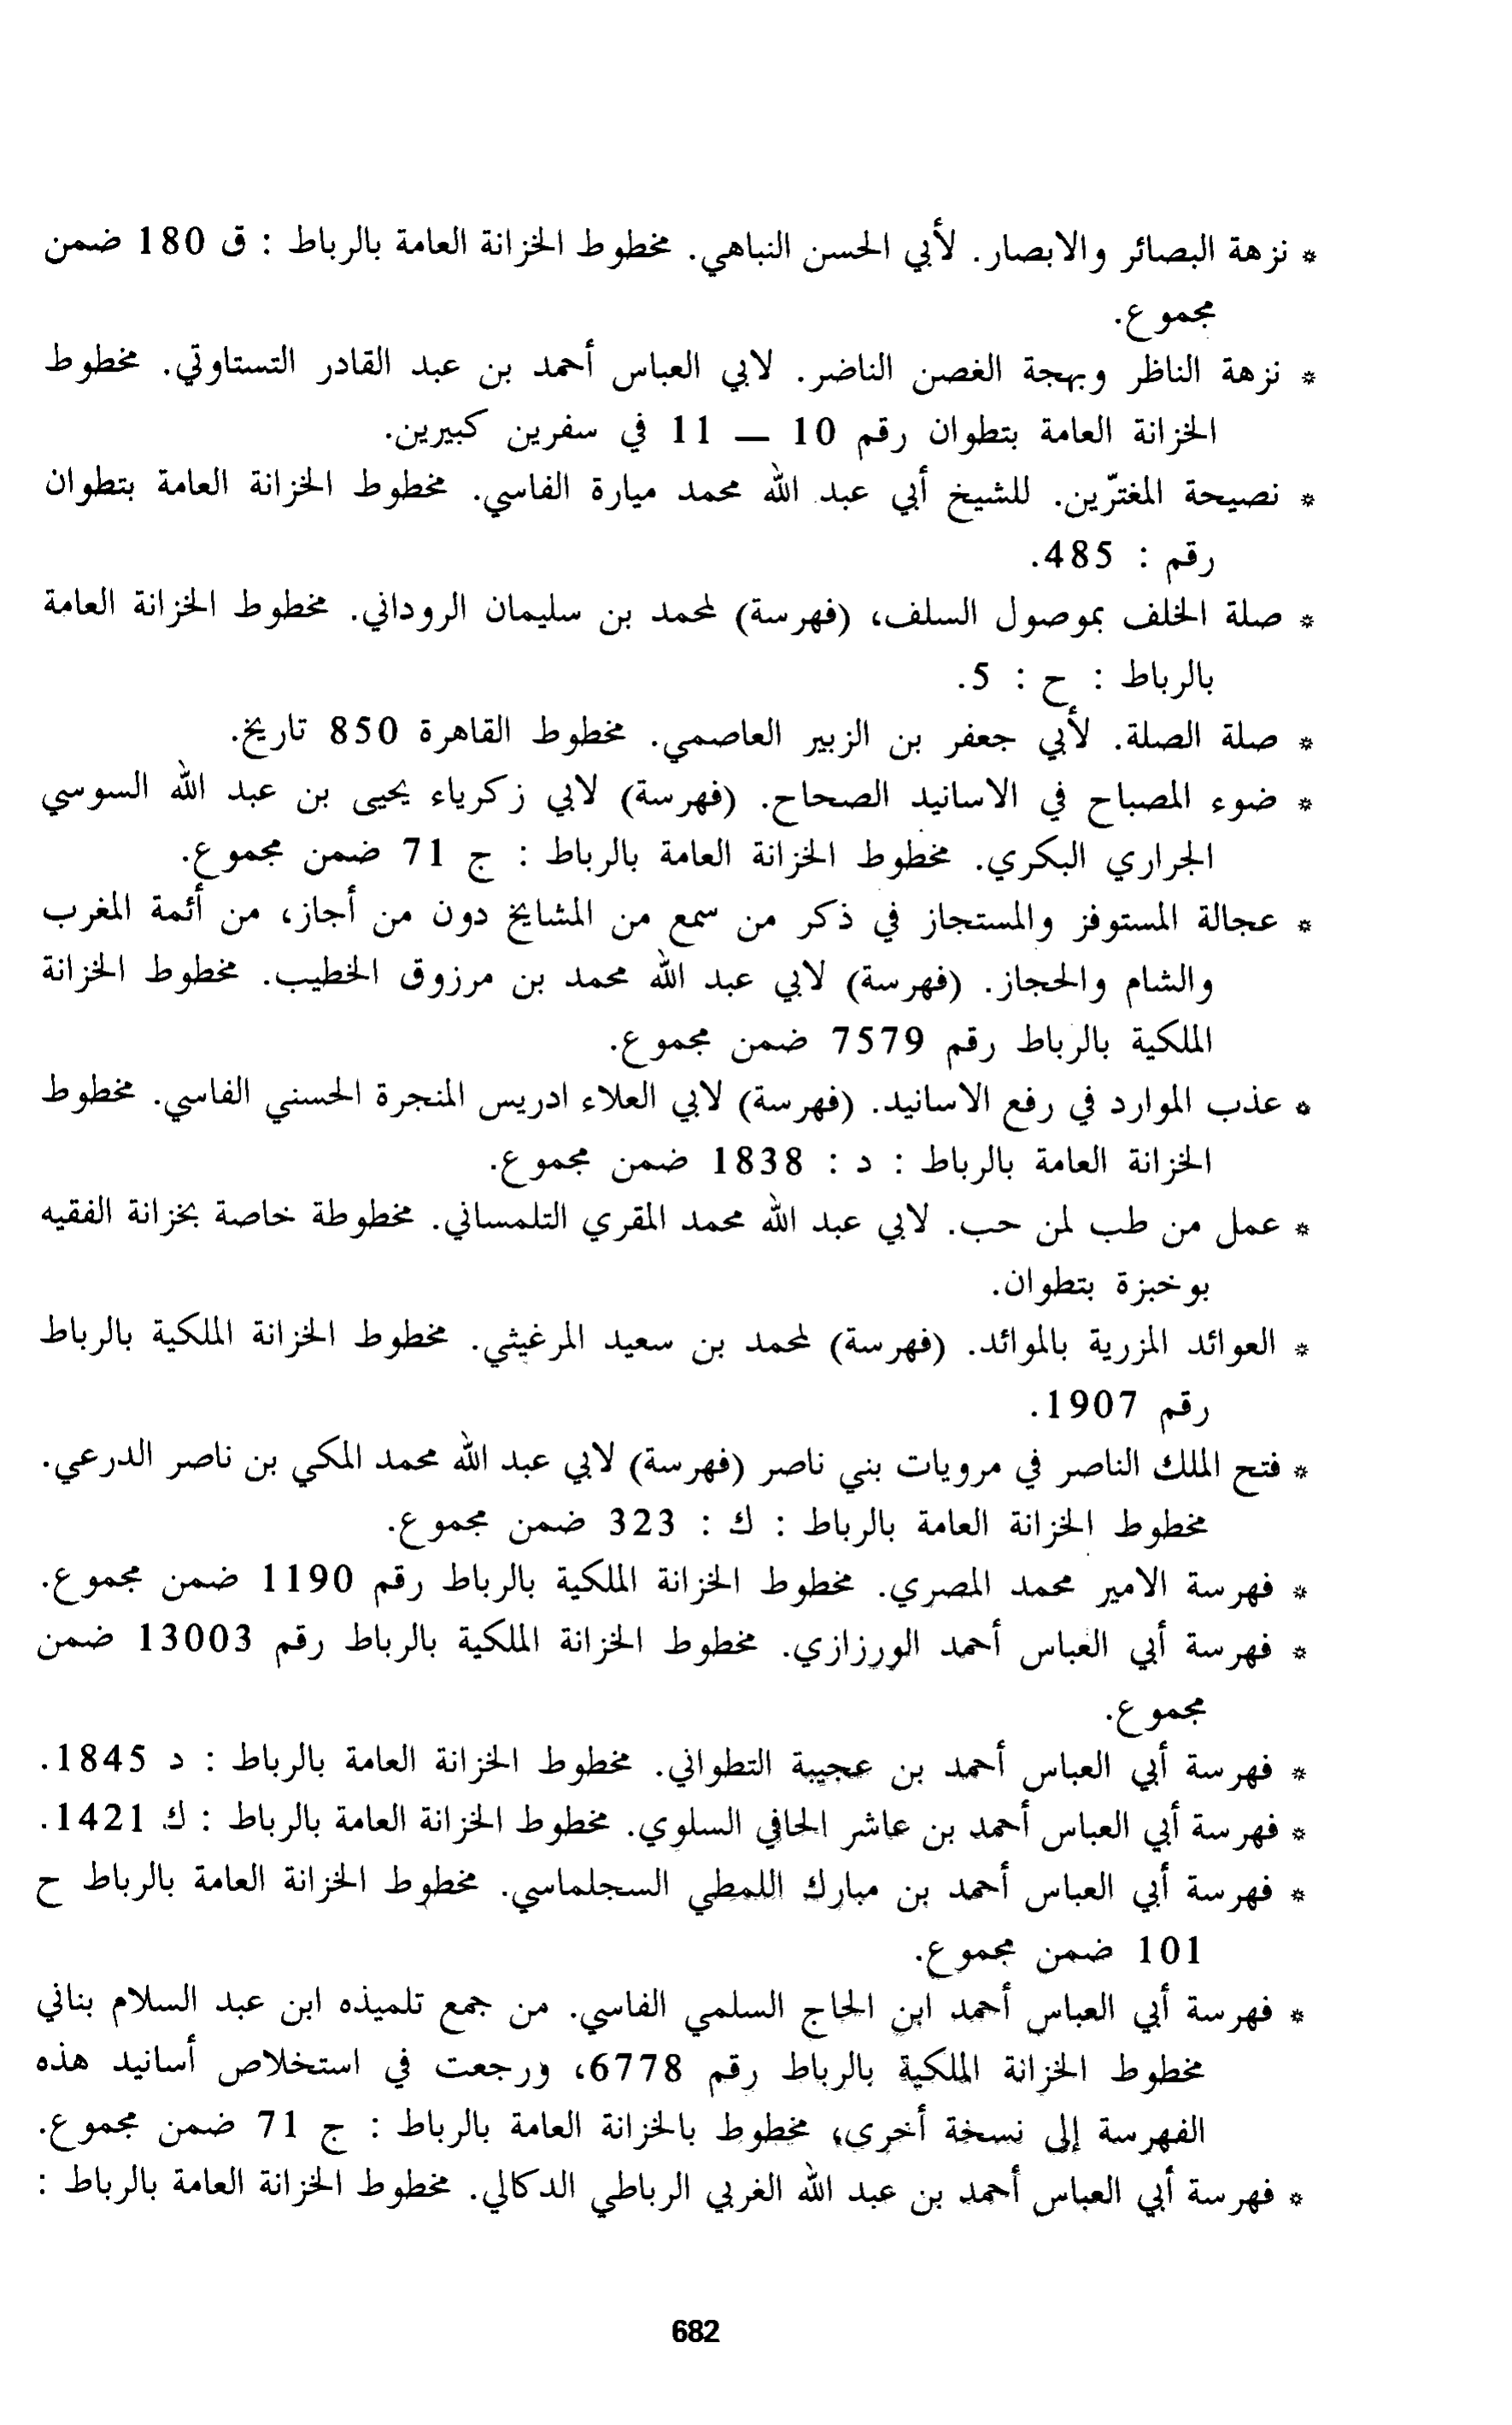 * نزهة البصائر والابصار. لأبي الحسن النباهي. مخطوط الخزانة العامة بالرباط : ق 180 ضمن
مجموع.
* نزهة الناظر وبهجة الغصن الناضر. لابي العباس أحمد بن عبد القادر التستاوتي. مخطوط
الخزانة العامة بتطوان رقم 10 — 11 في سفرين كبيرين.
* نصيحة المغترّين. للشيخ أبي عبد الله محمد ميارة الفاسي. مخطوط الخزانة العامة بتطوان
رقم : 485.
* صلة الخلف بموصول السلف، (فهرسة) لمحمد بن سليمان الروداني. مخطوط الخزانة العامة
بالرباط : ح : 5.
* صلة الصلة. لأبي جعفر بن الزبير العاصمي. مخطوط القاهرة 850 تاريخ.
* ضوء المصباح في الاسانيد الصحاح. (فهرسة) لابي زكرياء يحيى بن عبد الله السوسي
الجراري البكري. مخطوط الخزانة العامة بالرباط : ج 71 ضمن مجموع.
* عجالة المستوفز والمستجاز في ذكر من سمع من المشايخ دون من أجاز، من أئمة المغرب
والشام والحجاز. (فهرسة) لابي عبد الله محمد بن مرزوق الخطيب. مخطوط الخزانة
الملكية بالرباط رقم 7579 ضمن مجموع.
* عذب الموارد في رفع الاسانيد. (فهرسة) لابي العلاء ادريس المنجرة الحسني الفاسي. مخطوط
الخزانة العامة بالرباط : د : 1838 ضمن مجموع.
* عمل من طب لمن حب. لابي عبد الله محمد المقري التلمساني. مخطوطة خاصة بخزانة الفقيه
بوخبزة بتطوان.
* العوائد المزرية بالموائد. (فهرسة) لمحمد بن سعيد المرغيثي. مخطوط الخزانة الملكية بالرباط
رقم 1907.
* فتح الملك الناصر في مرويات بني ناصر (فهرسة) لابي عبد الله محمد المكي بن ناصر الدرعي.
مخطوط الخزانة العامة بالرباط : ك : 323 ضمن مجموع.
* فهرسة الامير محمد المصري. مخطوط الخزانة الملكية بالرباط رقم 1190 ضمن مجموع.
* فهرسة أبي العباس أحمد الورزازي. مخطوط الخزانة الملكية بالرباط رقم 13003 ضمن
مجموع.
* فهرسة أبي العباس أحمد بن عجيبة التطواني. مخطوط الخزانة العامة بالرباط : د 1845.
* فهرسة أبي العباس أحمد بن عاشر الحافي السلوي. مخطوط الخزانة العامة بالرباط : ك 1421.
* فهرسة أبي العباس أحمد بن مبارك اللمطي السجلماسي. مخطوط الخزانة العامة بالرباط ح
101 ضمن مجموع.
* فهرسة أبي العباس أحمد ابن الحاج السلمي الفاسي. من جمع تلميذه ابن عبد السلام بناني
مخطوط الخزانة الملكية بالرباط رقم 6778، ورجعت في استخلاص أسانيد هذه
الفهرسة إلى نسخة أخرى، مخطوط بالخزانة العامة بالرباط : ج 71 ضمن مجموع.
* فهرسة أبي العباس أحمد بن عبد الله الغربي الرباطي الدكالي. مخطوط الخزانة العامة بالرباط :
682